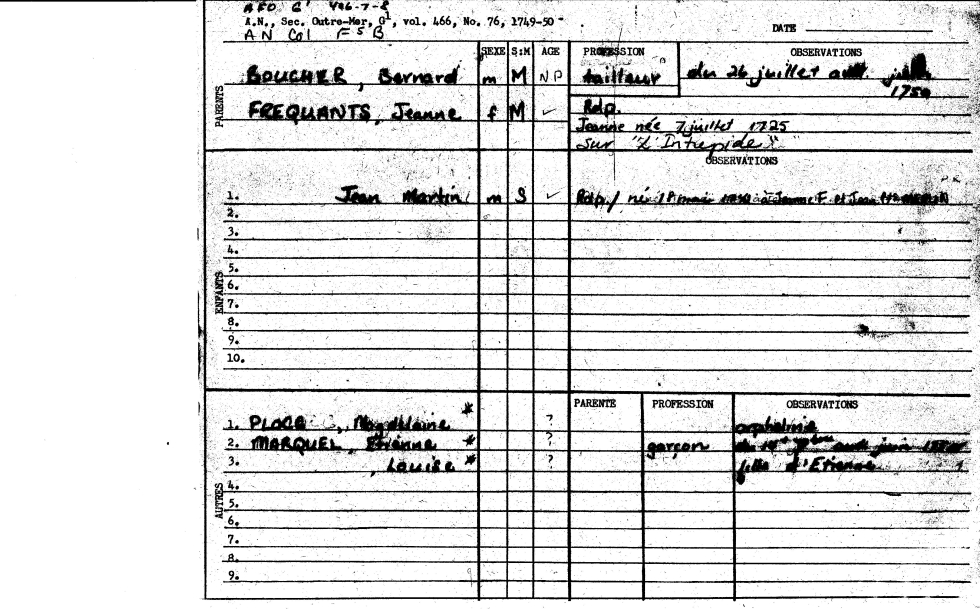 A.N., Sec. Outre-Mer, G1, vol. 466, No. 76, 1749-50
AN Col F5B
DATE
SEXE S:M AGE PROFESSION OBSERVATIONS
PARENTS
BOUCHER, Bernard m M NP tailleur du 26 juillet
1750
FREQUANTS, Jeanne f M ✓ Rdp.
Jeanne née 7 juillet 1725
sur "L'Intrepide"
OBSERVATIONS
ENFANTS
1. Jean Martin m S ✓ Rdp./ né mai à Jeanne F. et Jean
2.
3.
4.
5.
6.
7.
8.
9.
10.
PARENTE PROFESSION OBSERVATIONS
AUTRES
1. Magdelaine * ? orpheline
2. MARQUEL, Etienne * ? garçon du juin
3. , Louise * ? fille d'Etienne
4.
5.
6.
7.
8.
9.